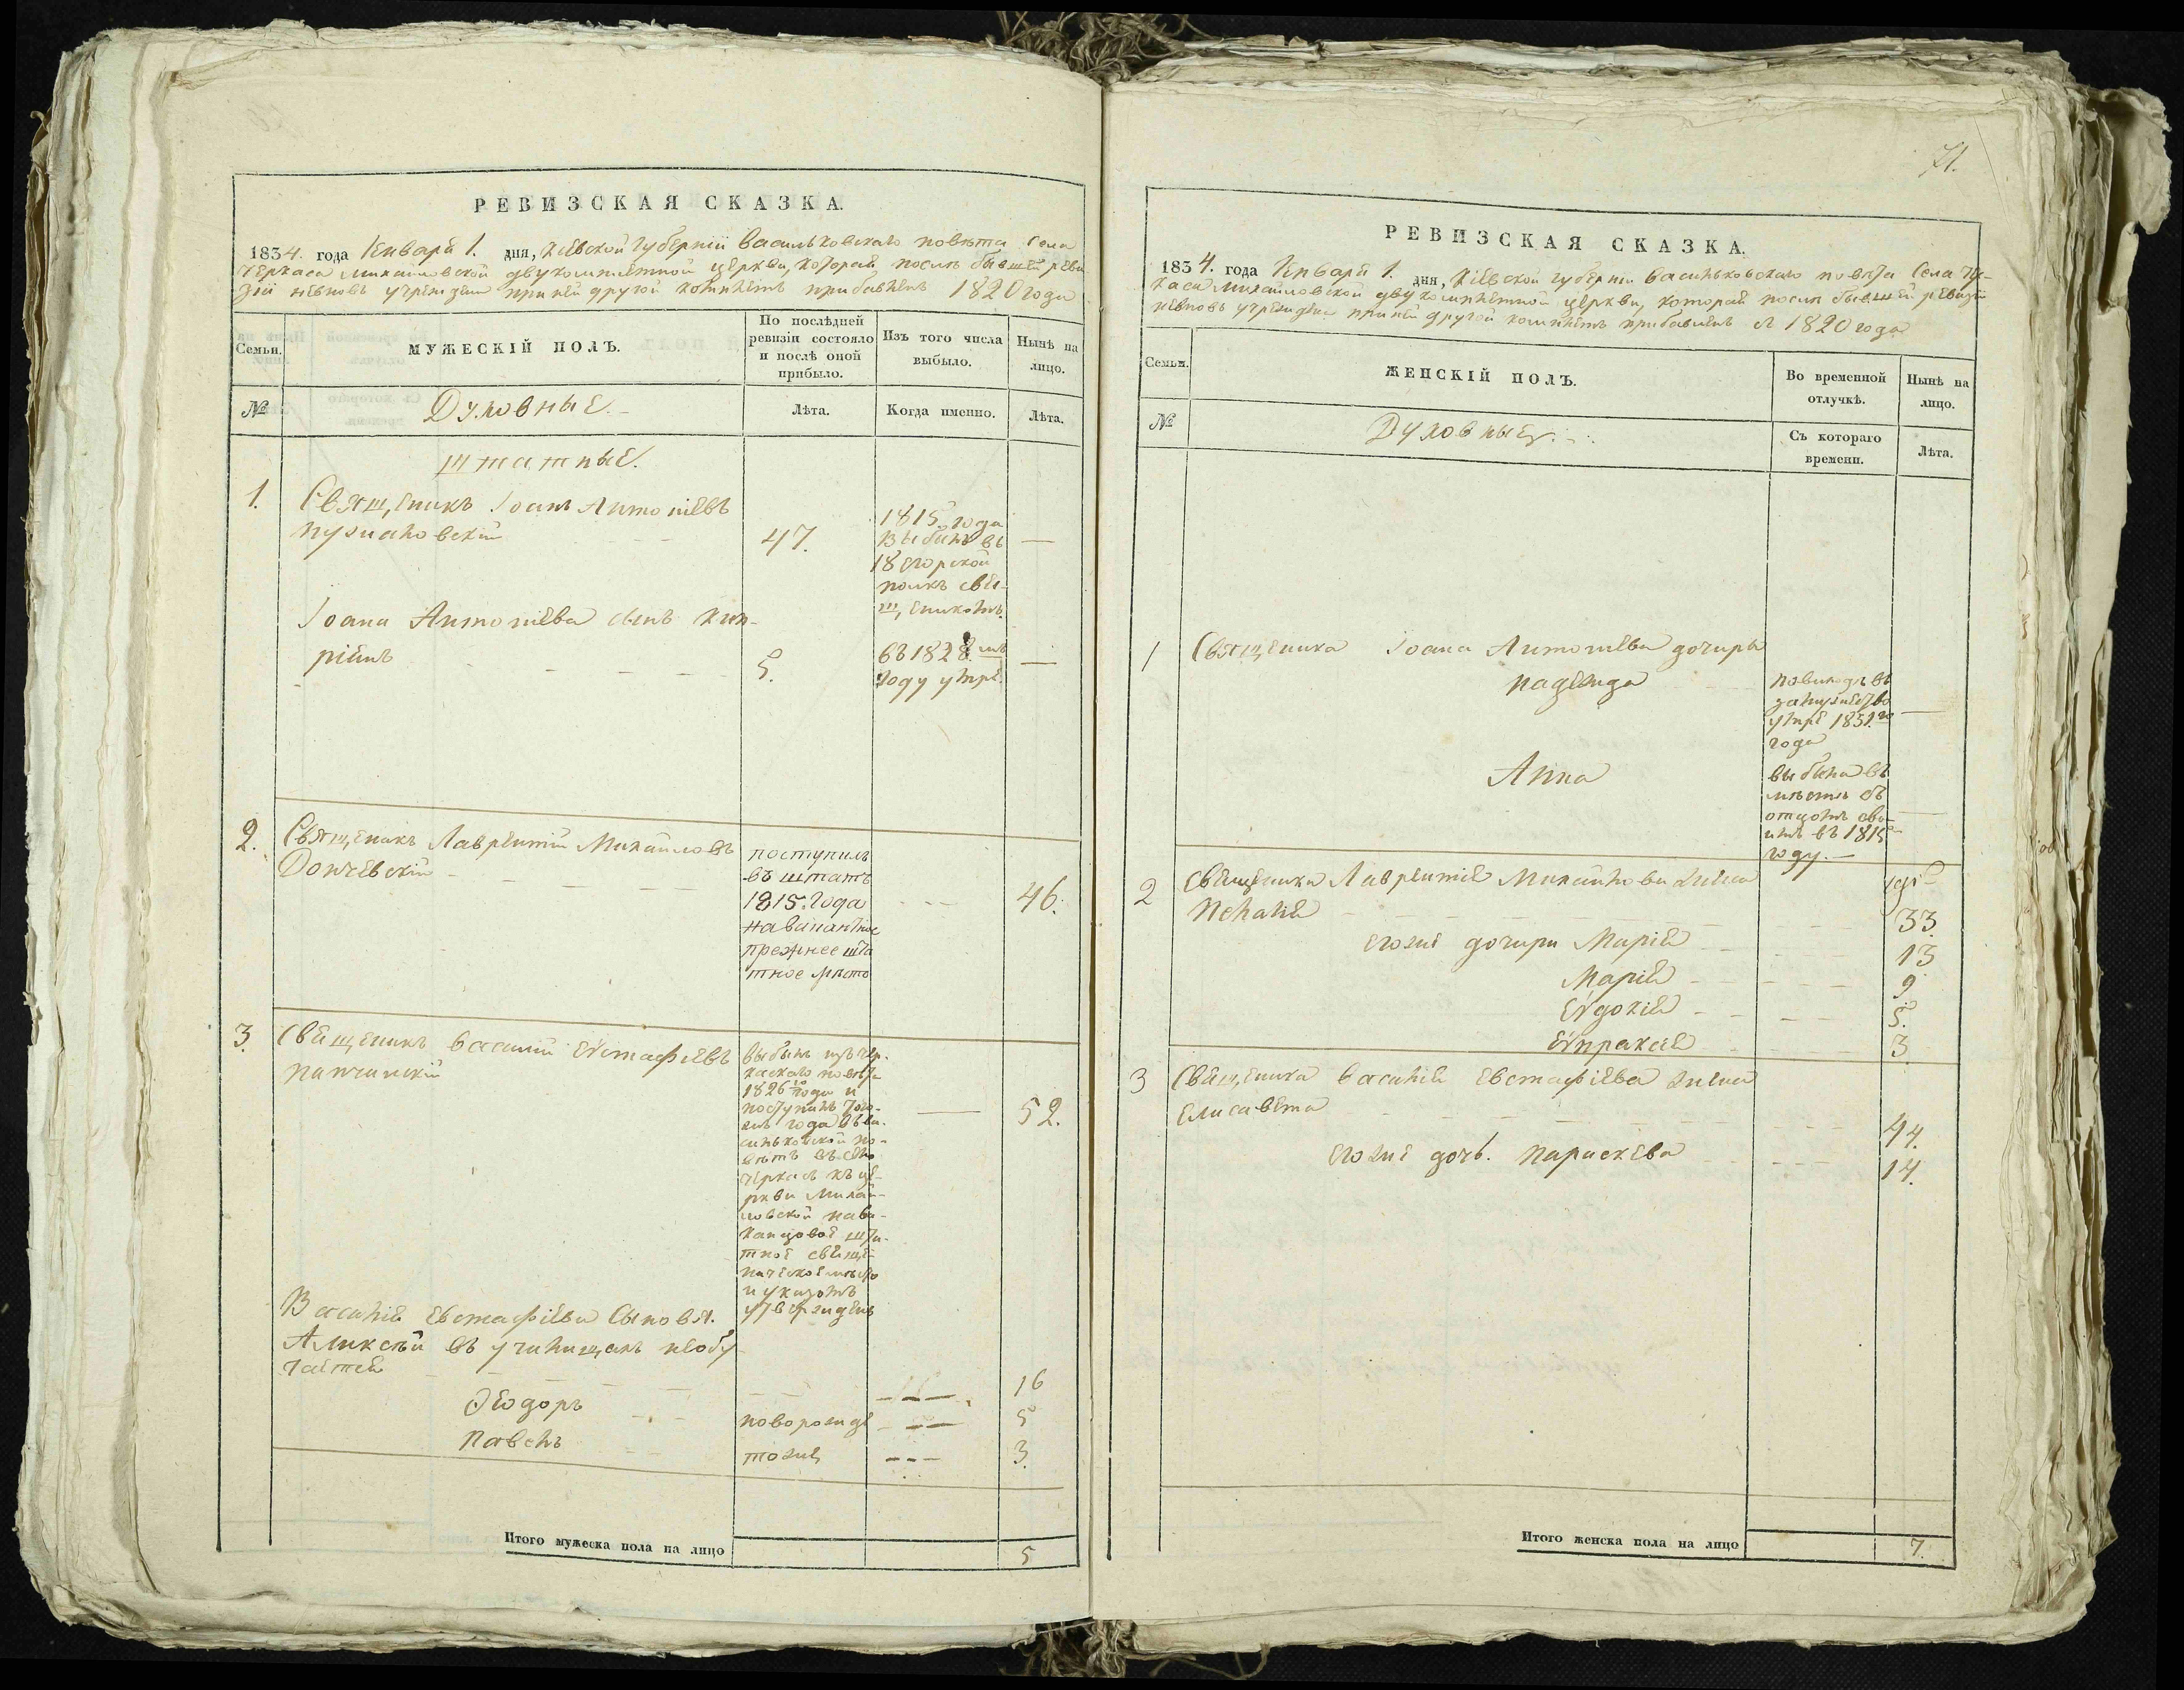 РЕВИЗСКАЯ СКАЗКА.
1834. года Генваря 1. дня, Кіевской губерніи Васильковскаго повѣта Села
Черкаса Михайловской двухкомплетной церкви, которая послѣ бывшей реви
зіи новь учрежден при ней другой комплетъ прибавленъ 1820 года
Семьи.
МУЖЕСКІЙ ПОЛЪ.
По послѣдней
ревизіи состояло
и послѣ оной
прибыло.
Изъ того числа
выбыло.
Нынѣ на
лицо.
№
Духовные.
Лѣта.
Когда именно.
Лѣта.
штатные.
1. Священикъ Іоанъ Антоніевъ
47.
1815. года
выбылъ въ
18 егорской
полкъ свя-
щеникомъ
Іоана Антоніева сынъ Кип-
ріянъ
5.
въ 1828 мъ
году умре.
2. Священикъ Лаврентій Михайловъ
Дончевскій
поступилъ
въ штатъ
1815. года
на ваканѣное
прежнее шта
тное мѣсто
46.
3. Священикъ Василій Еѵстафіевъ
выбылъ изъ чер-
каскаго повѣта
1826 го года и
поступилъ того-
жъ года въ ва-
сильковской по-
вѣтъ въ село
Черкасъ къ це-
ркви Михай-
ловской на ва-
канцовое шта-
тное свяще-
ническое мѣсто
и указомъ
утвержденъ
52.
Василія Евстафіева сыновя.
Аликсѣй въ училищахъ необу
чается
16
Ѳеодоръ
новорожде
5
Павелъ
тоже
3.
Итого мужеска пола на лицо
5
71.
РЕВИЗСКАЯ СКАЗКА.
1834. года Генваря 1. дня, Кіевской губерніи Васильковскаго повѣта Села Чер-
каса Михайловской двухкомплетной церкви, которая послѣ бывшей ревизіи
новь учреждена при ней другой комплетъ прибавленъ 1820 года
Семьи.
ЖЕНСКІЙ ПОЛЪ.
Во временной
отлучкѣ.
Нынѣ на
лицо.
№
Духовные.
Съ котораго
времени.
Лѣта.
1 Священика Іоана Антоніева дочиры
Надежда
замужество
умре 1831. го
года
Анна
выбыла въ
мѣстѣ съ
отцомъ сво-
имъ въ 1815
году.
2 Священика Лаврентія Михайлова жена
Пелагія
33.
егоже дочири Марія
13
Марія
9
Еѵдокія
5.
Еѵпраксія
3
3 Священика Василія Евстафіева жена
Елисавета
44.
егоже дочь. Параскева
14.
Итого женска пола на лицо
7.